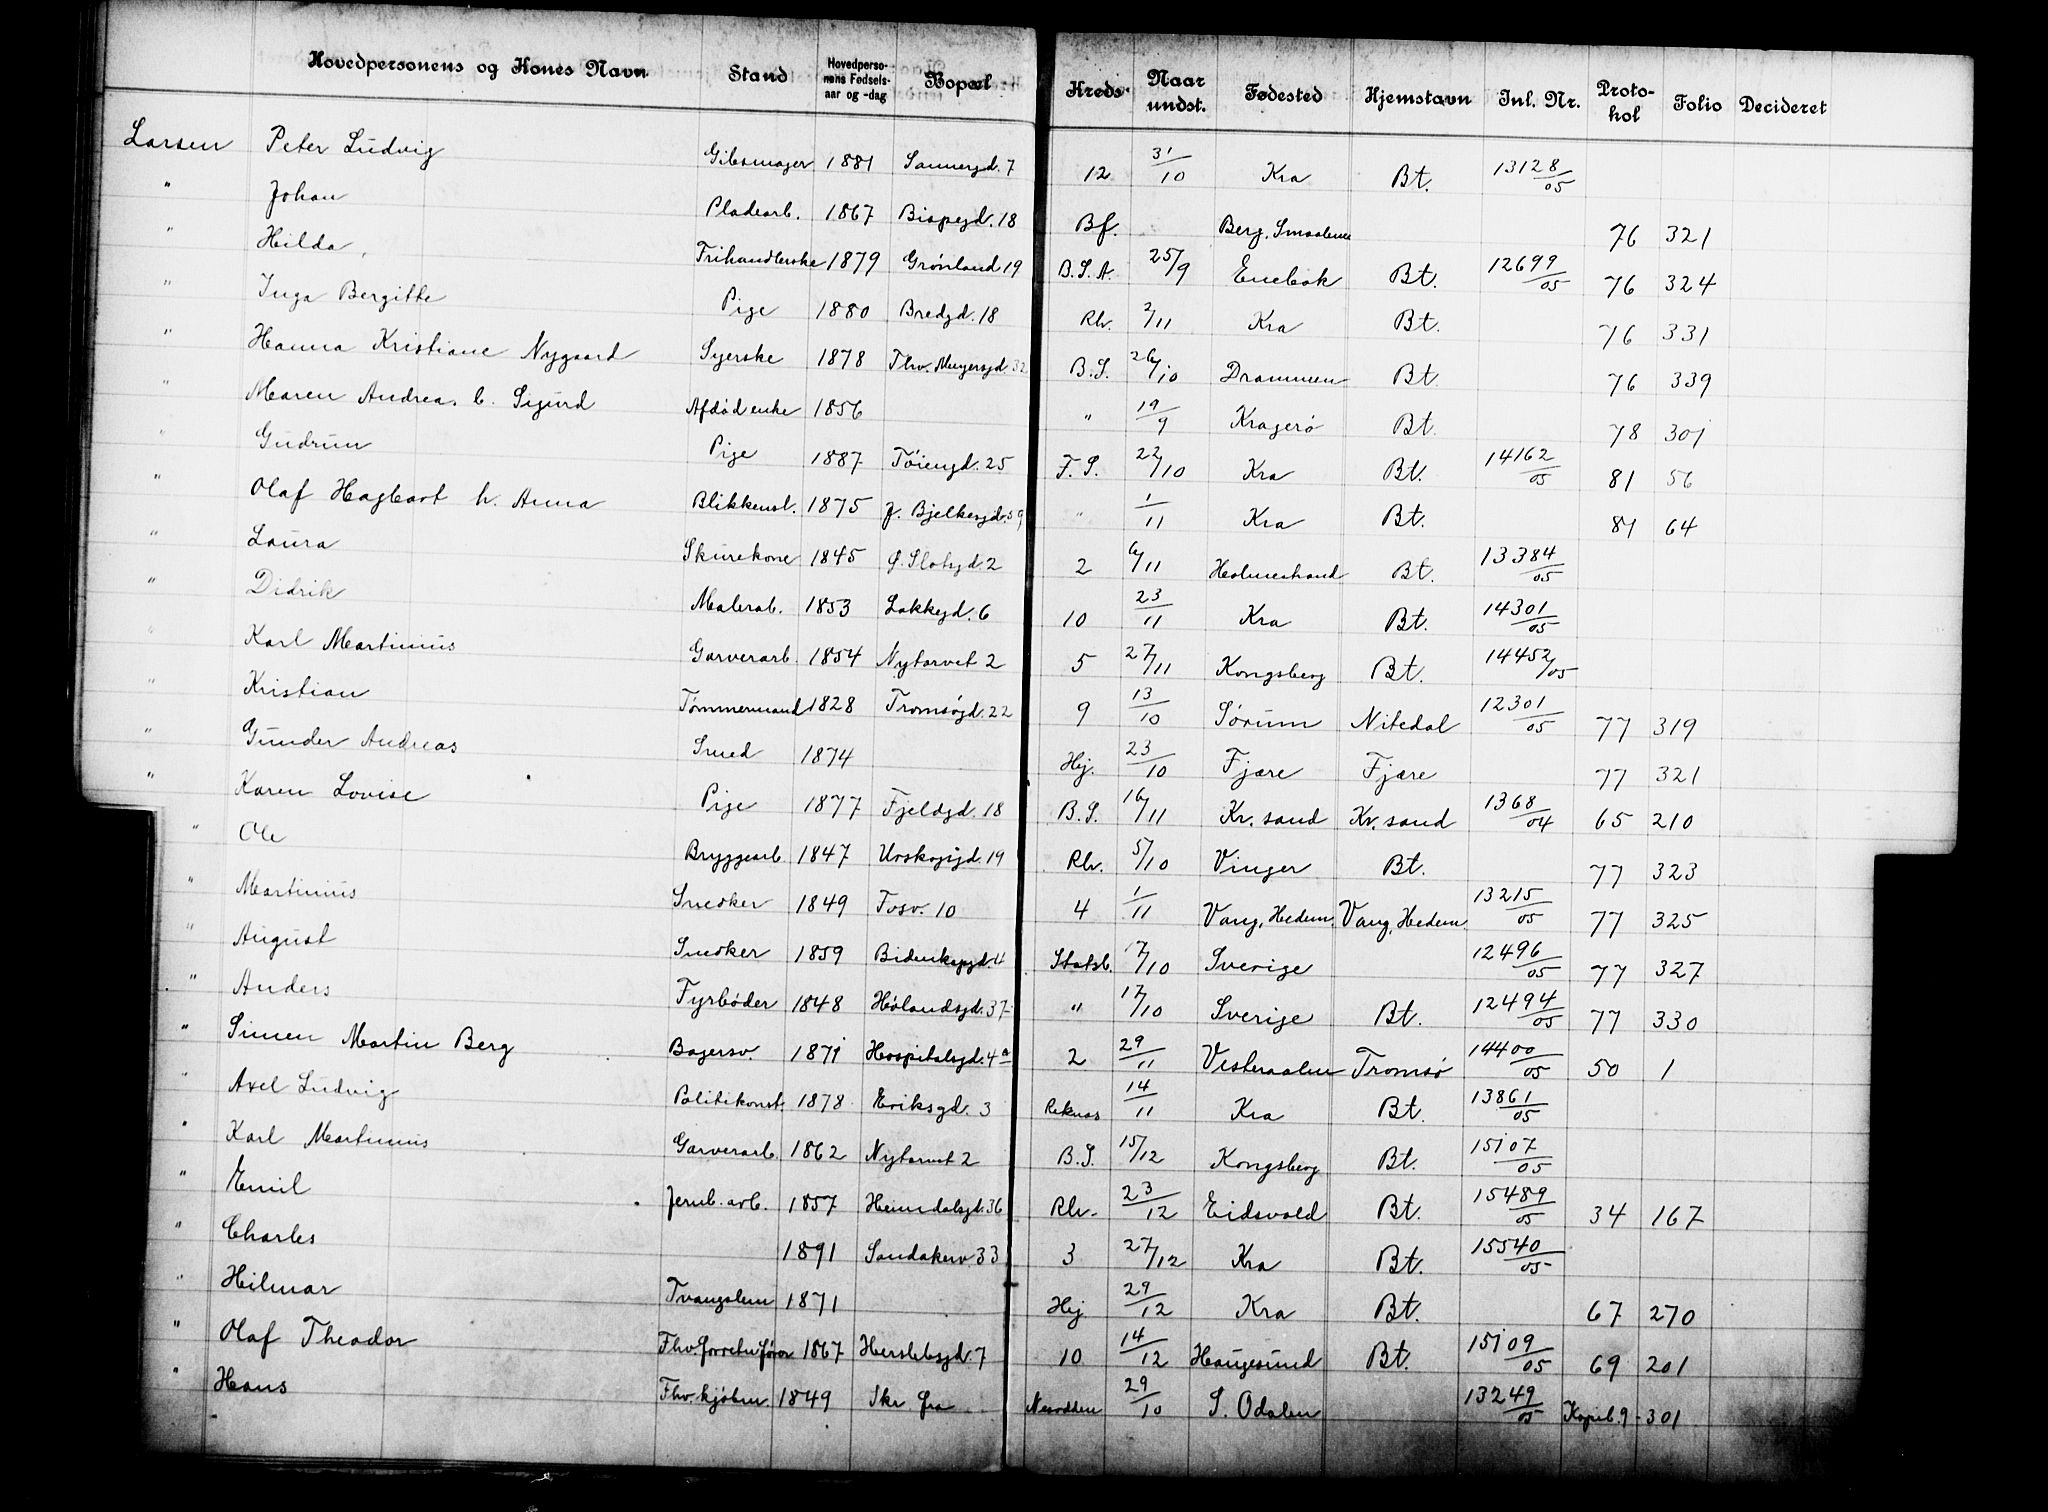 Hovedpersonens og Kones Navn Stand Hovedperso-nens Fødsels-aar og -dag Bopæl Kreds Naar undst. Fødested Hjemstavn Inl. Nr. Proto-kol Folio Decideret
Larsen Peter Ludvig Gibsmager 1881 Sannergd. 7 12 31/10 Kra Bt. 13128/05
" Johan Pladearb. 1867 Bispegd. 18 Bf. Berg, Smaalenene 76 321
" Hilda, Frihandlerske 1879 Grønland 19 B.S.A. 25/9 Enebak Bt. 12699/05 76 324
" Inga Bergitte Pige 1880 Bredgd. 18 Rh. 2/11 Kra Bt. 76 331
" Hanna Kristiane Nygaard Syerske 1878 Thv. Meyersgd. 32 B.S. 26/10 Drammen Bt. 76 339
" Maren Andrea. b. Sigurd Afdød enke 1856 " 19/9 Kragerø Bt. 78 301
" Gudrun Pige 1887 Tøiengd. 25 F.S. 22/10 Kra Bt. 14162/05 81 56
" Olaf Hagbart h. Anna Blikkensl. 1875 J. Bjelkesgd. 59 " 1/11 Kra Bt. 81 64
" Laura Skurekone 1845 Ø. Slotsgd. 2 2 6/11 Holmestrand Bt. 13384/05
" Didrik Malerab. 1853 Lakkegd. 6 10 23/11 Kra Bt. 14301/05
" Karl Martinius Garverarb. 1854 Nytorvet 2 5 27/11 Kongsberg Bt. 14452/05
" Kristian Tømmermand 1828 Tromsøgd. 22 9 13/10 Sørum Nitedal 12301/05 77 319
" Gunder Andreas Smed 1874 Hej. 23/10 Fjære Fjære 77 321
" Karen Lovise Pige 1877 Fjeldgd. 18 B.S. 16/11 Kr. sand Kr. sand 1368/04 65 210
" Ole Bryggearb. 1847 Urskogsgd. 19 Rh. 5/10 Vinger Bt. 77 323
" Martinius Snedker 1849 Fosv. 10 4 1/11 Vang, Hedem. Vang, Hedem. 13215/05 77 325
" August Snedker 1859 Bidenkapsgd. 4 Statsb. 17/10 Sverige 12496/05 77 327
" Anders Fyrbøder 1848 Hølandsgd. 37 " 17/10 Sverige Bt. 12494/05 77 330
" Simen Martin Berg Bagersv. 1871 Hospitalsgd. 4a 2 29/11 Vesteraalen Tromsø 14400/05 50 1
" Axel Ludvig Politikonst. 1878 Eriksgd. 3 Reknas 14/11 Kra Bt. 13861/05
" Karl Martinius Garverarb. 1862 Nytorvet 2 B.S. 15/12 Kongsberg Bt. 15107/05
" Emil Jernb. arb. 1857 Heimdalsgd. 36 Rh. 23/12 Eidsvold Bt. 15489/05 34 167
" Charles 1891 Sandakerv. 33 3 27/12 Kra Bt. 15540/05
" Hilmar Tvangslem 1871 Hej 29/12 Kra Bt. 67 270
" Olaf Theodor Fhv. forretn.fører 1867 Herslebsgd. 7 10 14/12 Haugesund Bt. 15109/05 69 201
" Hans Fhv. kjøbm 1849 Skr. fra Nesodden 29/10 S. Odalen 13249/05 Kopib. 9 - 301